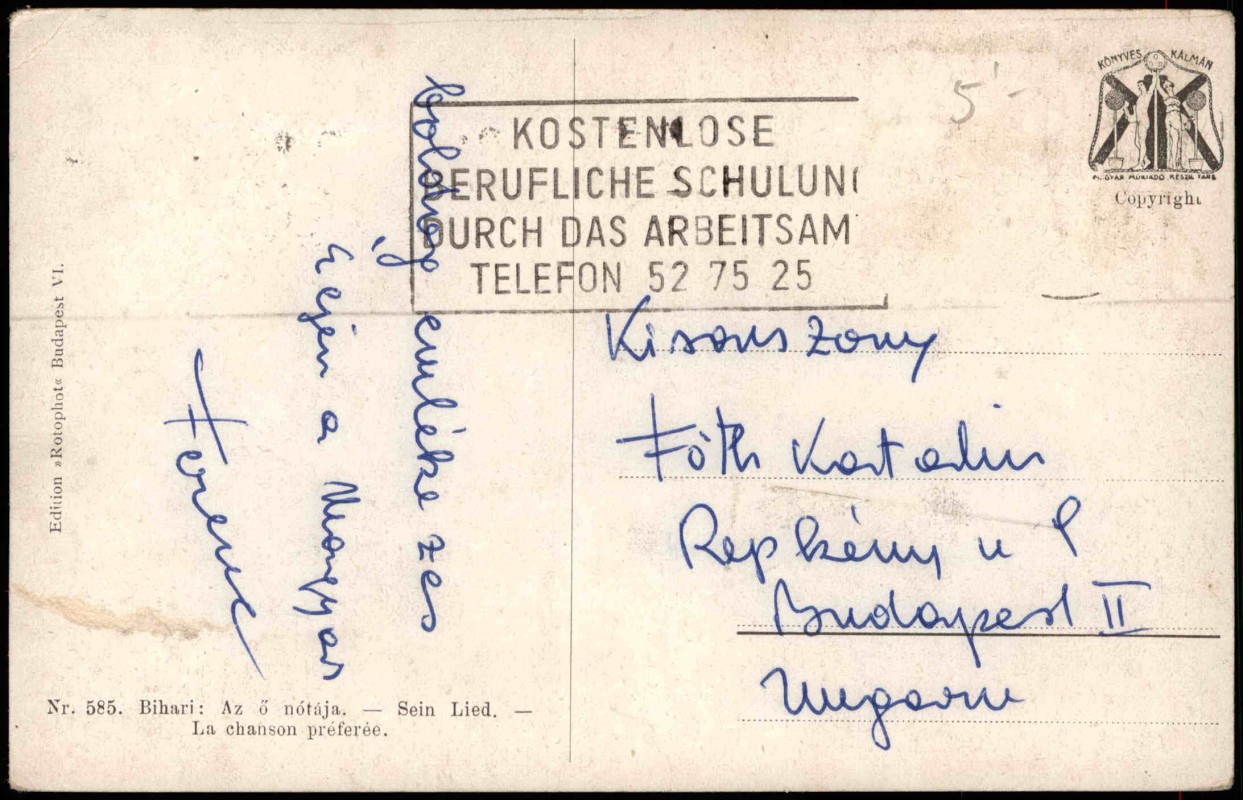 KOSTENLOSE
BERUFLICHE SCHULUNG
DURCH DAS ARBEITSAM
TELEFON 52 75 25
KÖNYVES KÁLMÁN
MAGYAR MŰKIADÓ RÉSZV. TÁRS
Copyright
5'-
boldog emlékezés
éjén a Magyar
Ferenc
Kisasszony
Fóth Katalin
Repkény u
Budapest II
Ungarn
Edition »Rotophot« Budapest VI.
Nr. 585. Bihari: Az ő nótája. — Sein Lied. —
La chanson préferée.